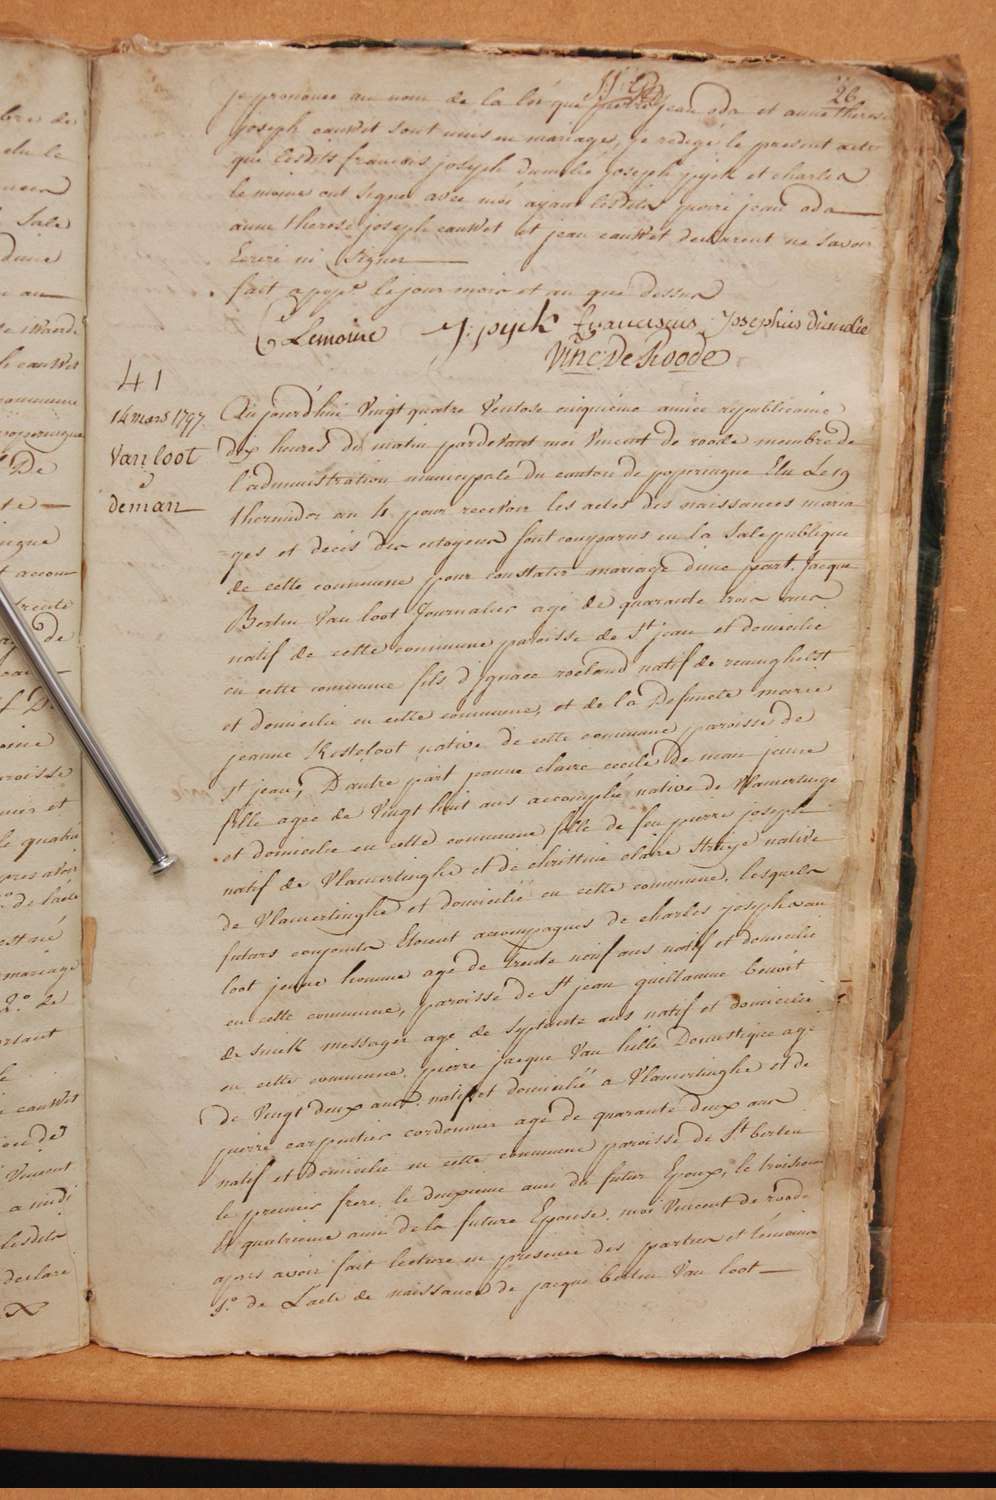 26
je prononce au nom de la loi que pierre jean oda et anne therese
joseph cauwet sont unis en mariage, je redigé le present acte
que lesdits francois joseph dumilié joseph pyck et charles
le moine ont signé avec moi ayant lesdits pierre jean oda
anne therese joseph cauwet et jean cauwet declarent ne savoir
Ecrire ni Signer
fait a pope. le jour mois et an que dessus
C Lemoine J: pyck Franciscus Josephus
Vinc: De Roode
41
14 mars 1797.
Van loot
&
deman
Aujourd'hui Vingt quatre Ventose cinquième année republicaine
dix heures du matin pardevant moi Vincent de roode membre de
l'administration municipale du canton de poperingue Elu Le 19
thermidor an 4. pour recevoir les actes des naissances maria-
=ges et decès des citoyens sont comparus en la Sale publique
de cette commune pour constater mariage d'une part. Jacque
Bertin Van loot Journalier agé de quarante trois ans
natif de cette commune paroisse de St jean et domicilié
en cette commune fils d'ignace roeland natif de reninghelst
et domicilié en cette commune, et de la Defuncte marie
jeanne Kesteloot native de cette commune paroisse de
st jean; D'autre part jeanne claire cecile De man jeune
fille agée de Vingt huit ans accomplie native de Vlamertinge
et domicilié en cette commune fille de feu pierre joseph
natif de Vlamertinghe et de christine claire Struye native
de Vlamertinghe et domicilié en cette commune, lesquels
futurs conjoints Etoient accompagnés de charles joseph van
loot jeune homme agé de trente neuf ans natif et domicilié
en cette commune, paroisse de St jean guillaume benoit
de smelk messager agé de septante ans natif et domicilié
en cette commune. pierre jacque Van hille Domestique agé
de Vingt deux ans. natif et domicilié a Vlamertinghe et de
pierre carpentier cordonnier agé de quarante deux ans
natif et domicilié en cette commune paroisse de St bertin
le premier frere. le deuxieme ami du futur Epoux, le troisieme
et quatrieme ami de la future Epouse. moi Vincent de roode
apres avoir fait lecture en presence des parties et temoins
1.° de L'acte de naissance de jacque bertin Van loot